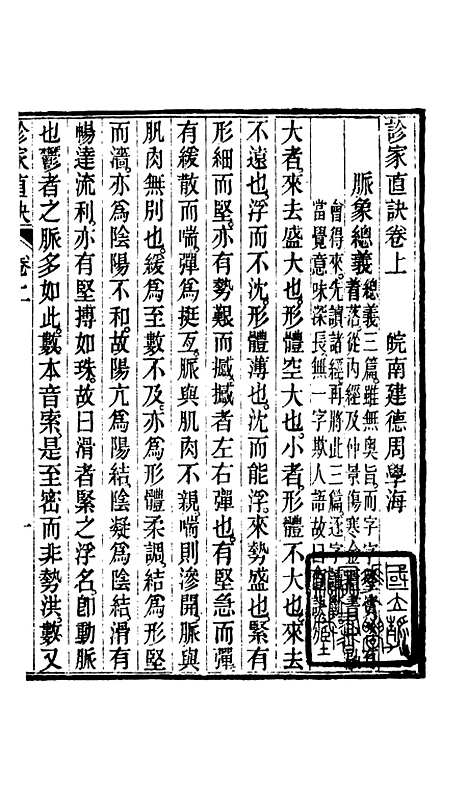 診家直訣卷上　皖南建德周學海
脈象總義
總義三篇雖無奧旨而字字
著落從內經及仲景傷寒金
會得來先讀諸經再將此三篇逐字
當覺意味深長無一字欺人語故曰
大者來去盛大也形體空大也小者形體不大也來去
不遠也浮而不沈形體薄也沈而能浮來勢盛也緊有
形細而堅亦有勢艱而撼撼者左右彈也有堅急而彈
有緩散而喘彈爲挺亙脈與肌肉不容喘則滲開脈與
肌肉無別也緩爲至數不及亦爲形體柔調結爲形堅
而濇亦爲陰陽不和故陽亢爲陽結陰凝爲陰結滑有
暢達流利亦有堅搏如珠故曰滑者緊之浮名卽動脈
也鬱者之脈多如此數本音索是至密而非勢洪數又
診家直訣　卷上　一